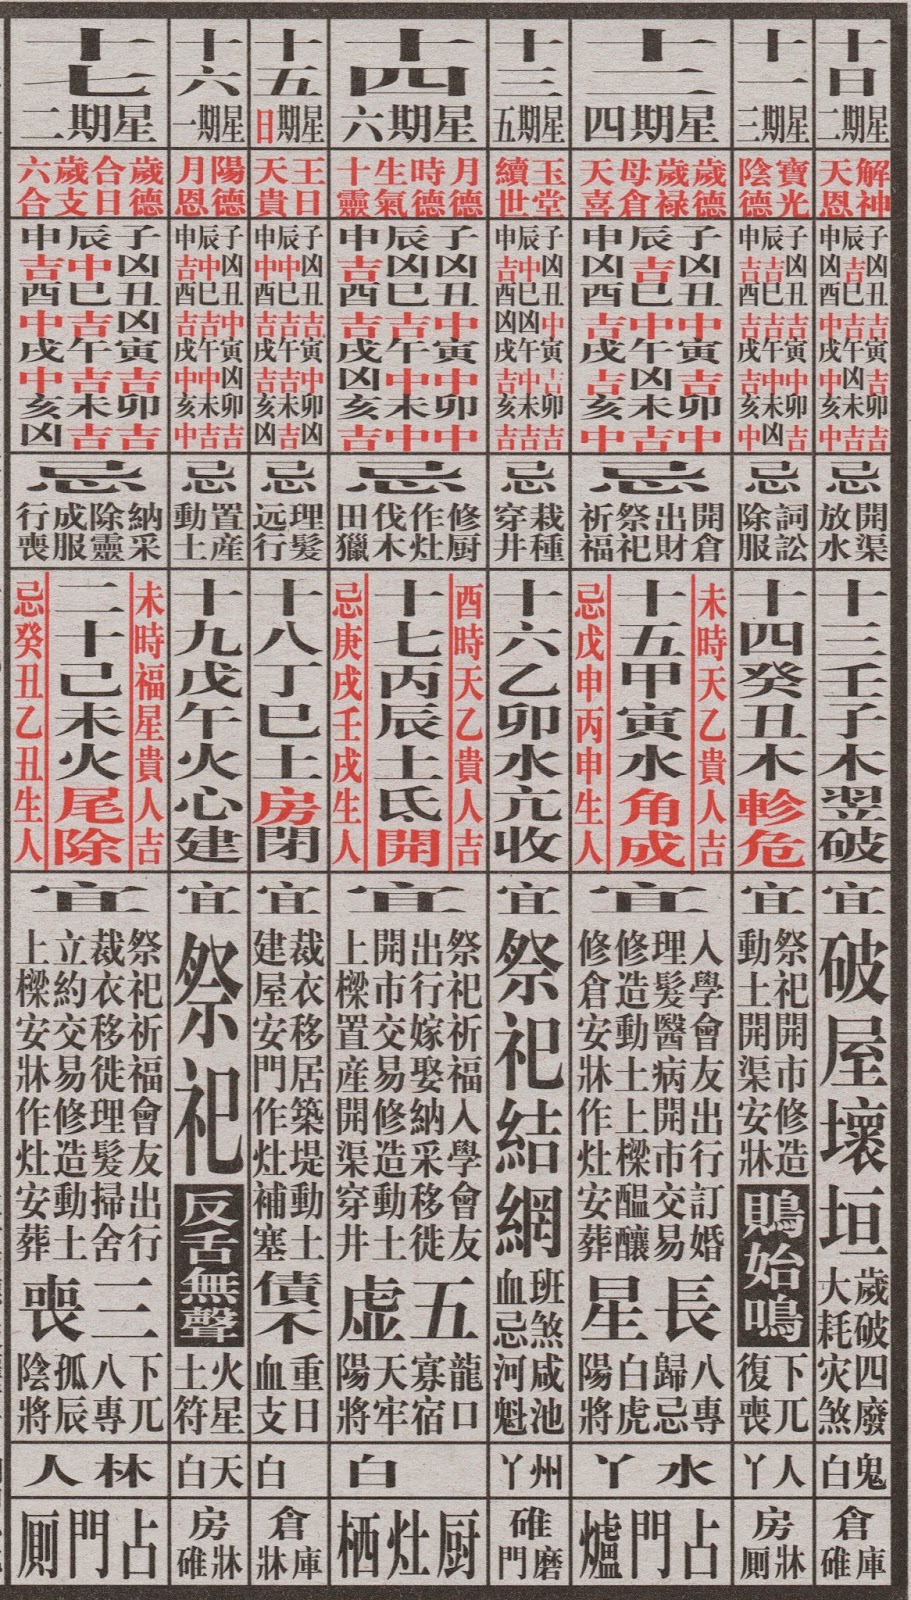 十日
星期二
解神
天恩
子凶丑吉寅吉卯吉
辰吉巳吉午凶未吉
申凶酉中戌中亥中
忌
開渠
放水
十三壬子木翌破
宜
破屋壞垣
歲破四廢
大耗灾煞
鬼白
倉庫碓
十一
星期三
寶光
陰德
子凶丑吉寅中卯吉
辰吉巳吉午中未凶
申吉酉吉戌吉亥中
忌
詞訟
除服
十四癸丑木軫危
宜
祭祀開市修造
動土開渠安牀
鵙始鳴
下兀
復喪
人丫
房牀厠
十二
星期四
歲德
歲祿
母倉
天喜
子凶丑中寅吉卯中
辰吉巳中午凶未吉
申凶酉吉戌吉亥中
忌
開倉
出財
祭祀
祈福
未時天乙貴人吉
十五甲寅水角成
忌戊申丙申生人
宜
入學會友出行訂婚
理髮醫病開市交易
修造動土上樑醞釀
修倉安牀作灶安葬
長星
八專
歸忌
白虎
陽將
水丫
占門爐
十三
星期五
玉堂
續世
子凶丑中寅吉卯吉
辰中巳凶午中未吉
申吉酉凶戌吉亥吉
忌
栽種
穿井
十六乙卯水亢收
宜
祭祀結網
班煞咸池
血忌河魁
州丫
碓磨門
十四
星期六
月德
時德
生氣
十靈
子凶丑中寅中卯中
辰凶巳吉午中未中
申吉酉中戌凶亥吉
忌
修厨
作灶
伐木
田獵
酉時天乙貴人吉
十七丙辰土氐開
忌庚戌壬戌生人
宜
祭祀祈福入學會友
出行嫁娶納采移徙
開市交易修造動土
上樑置産開渠穿井
五虚
龍口
寡宿
天牢
陽將
白
厨灶栖
十五
星期日
王日
天貴
子凶丑吉寅中卯凶
辰中巳吉午吉未吉
申中酉吉戌吉亥凶
忌
理髮
远行
十八丁巳土房閉
宜
裁衣移居築堤動土
建屋安門作灶補塞
債不
重日
血支
白
倉庫牀
十六
星期一
陽德
月恩
子凶丑中寅凶卯吉
辰中巳吉午中未吉
申吉酉吉戌中亥中
忌
置産
動土
十九戊午火心建
宜
祭祀
反舌無聲
火星
土符
天白
房牀碓
十七
星期二
歲德
合日
歲支
六合
子凶丑凶寅吉卯吉
辰中巳吉午吉未吉
申吉酉中戌中亥凶
忌
納采
除靈
成服
行喪
未時福星貴人吉
二十己未火尾除
忌癸丑乙丑生人
宜
祭祀祈福會友出行
裁衣移徙理髮掃舍
立約交易修造動土
上樑安牀作灶安葬
三喪
下兀
八專
孤辰
陰將
林人
占門厠